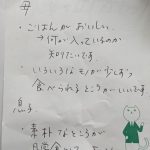 母
・ごはんが おいしい
→何が入っているのか
知りたいです
・いろいろなモノが少しずつ
食べられるところがいいです
息子
・素朴なところが